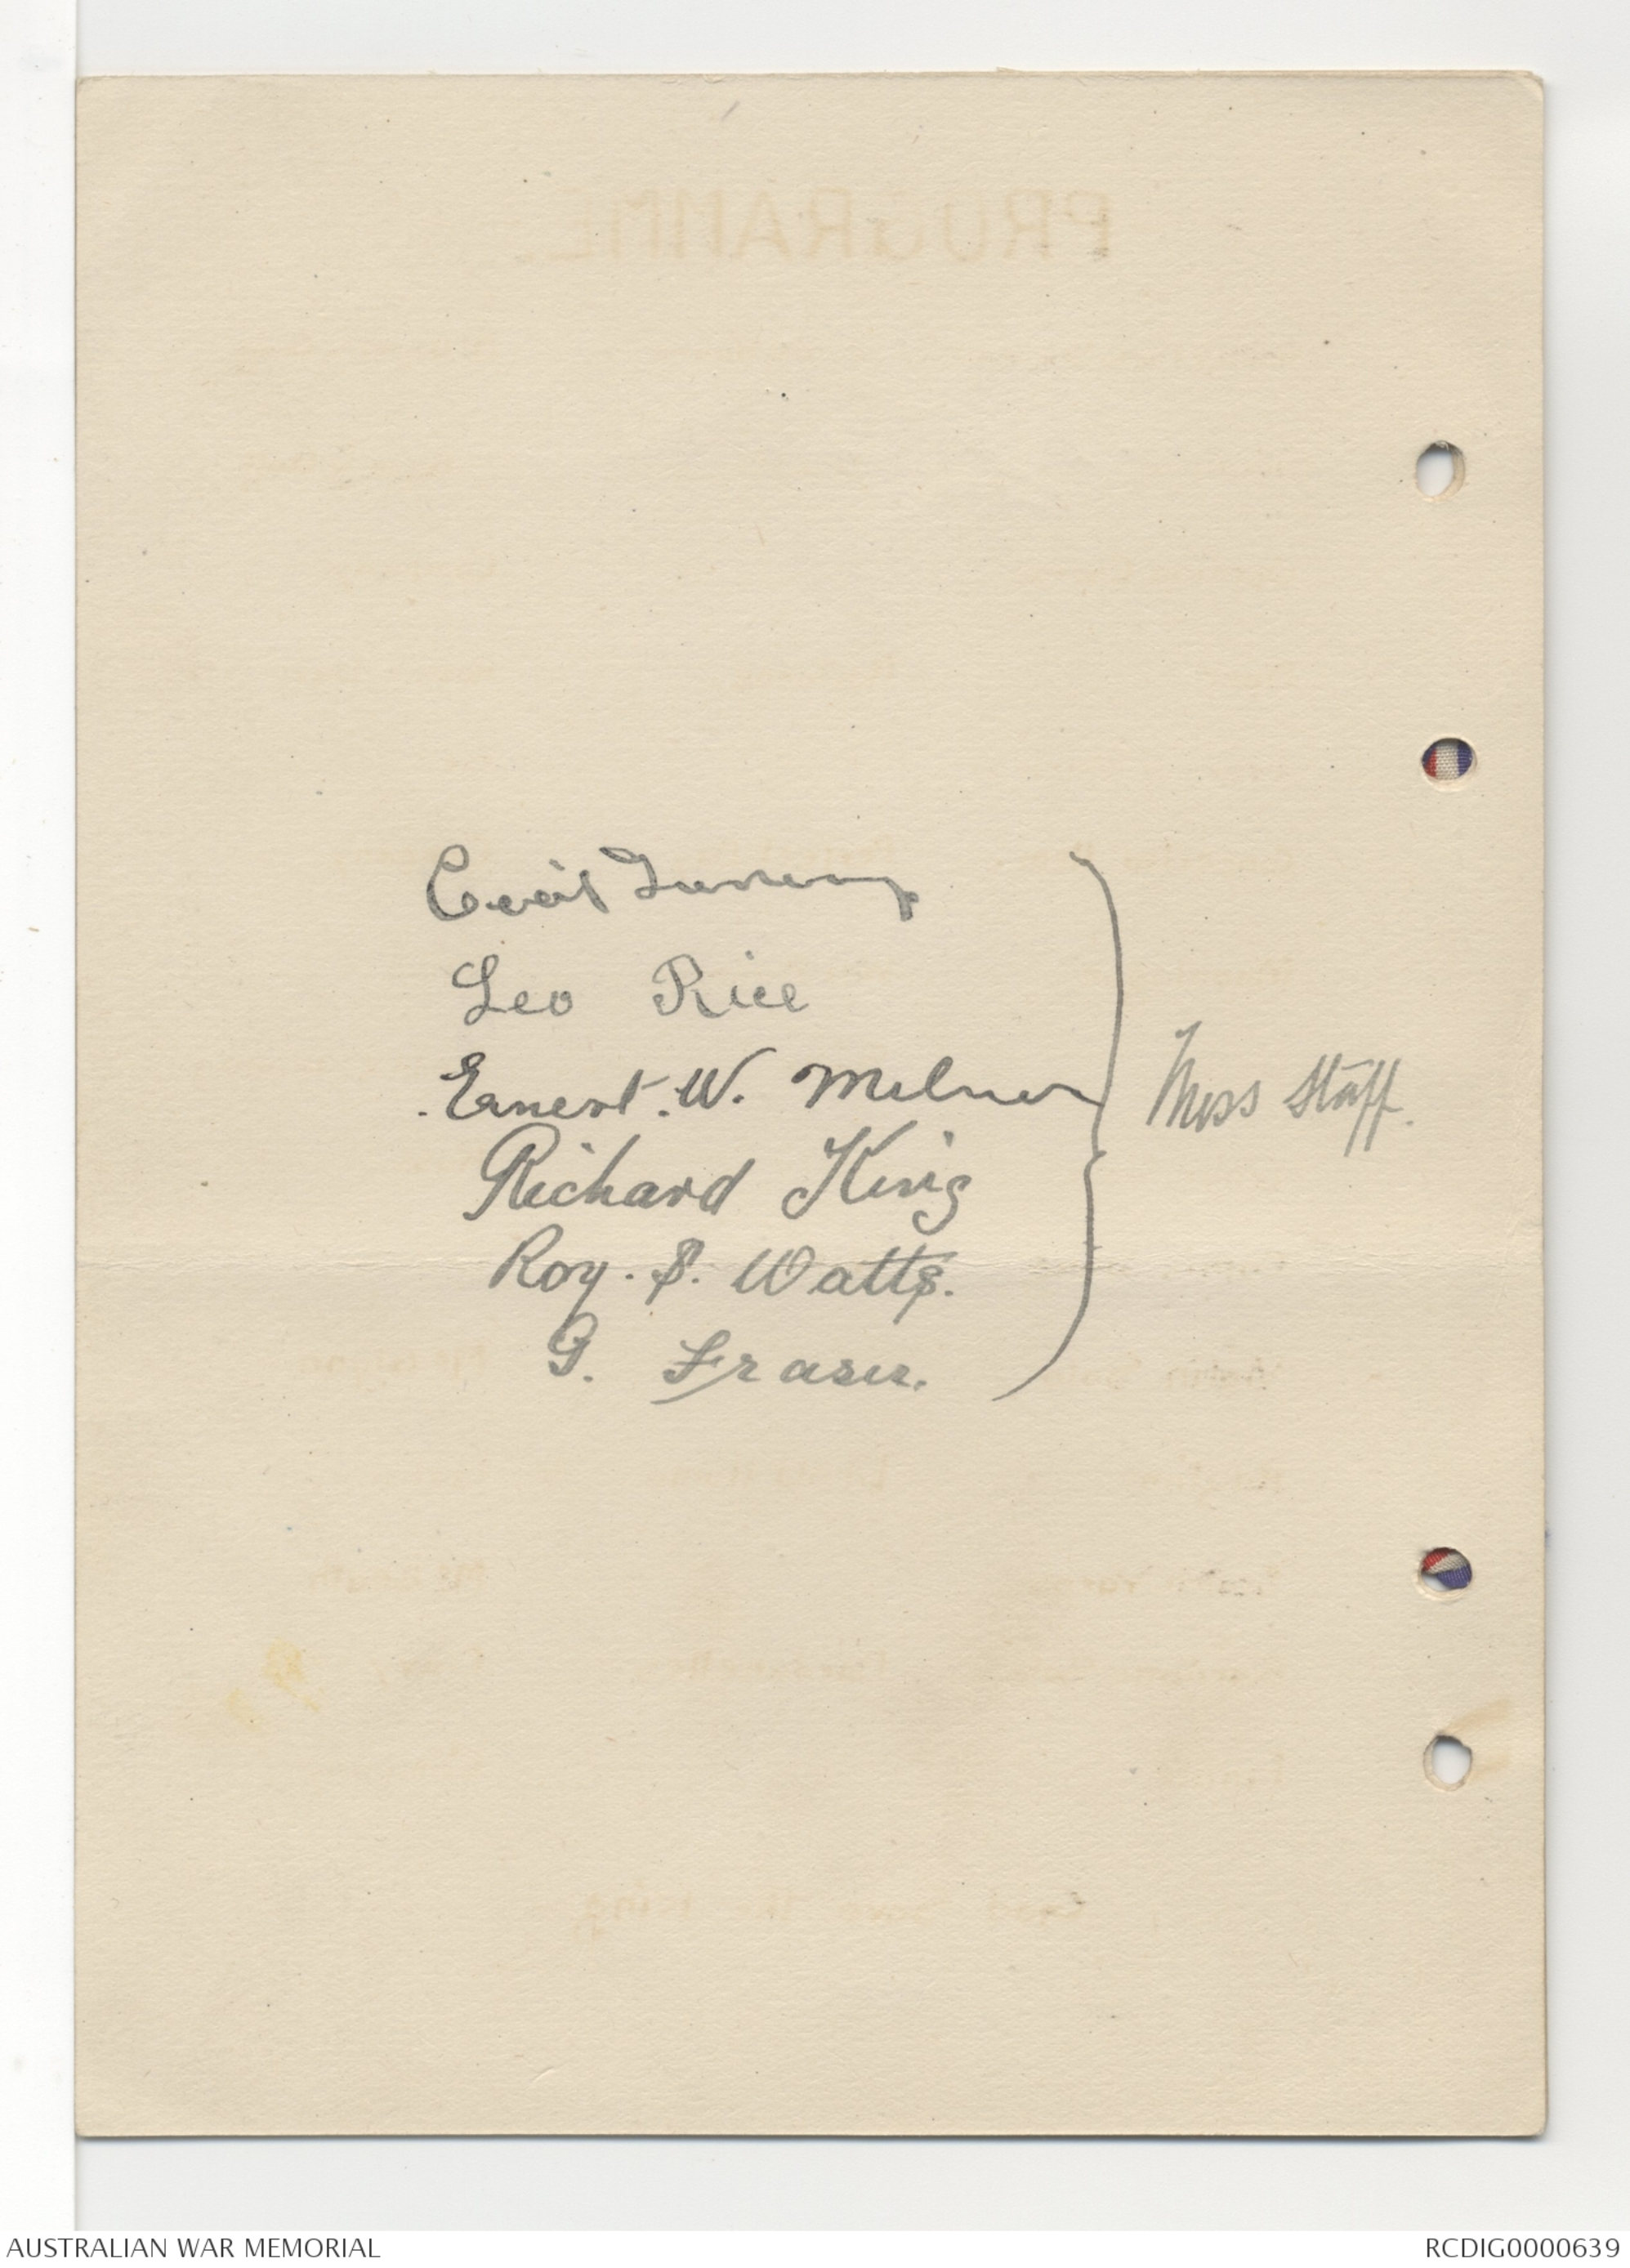 Cecil
Leo Rice
Ernest. W. Milner
Richard King
Roy. S. Watts.
G. Fraser.
Mess Staff.
AUSTRALIAN WAR MEMORIAL
RCDIG0000639